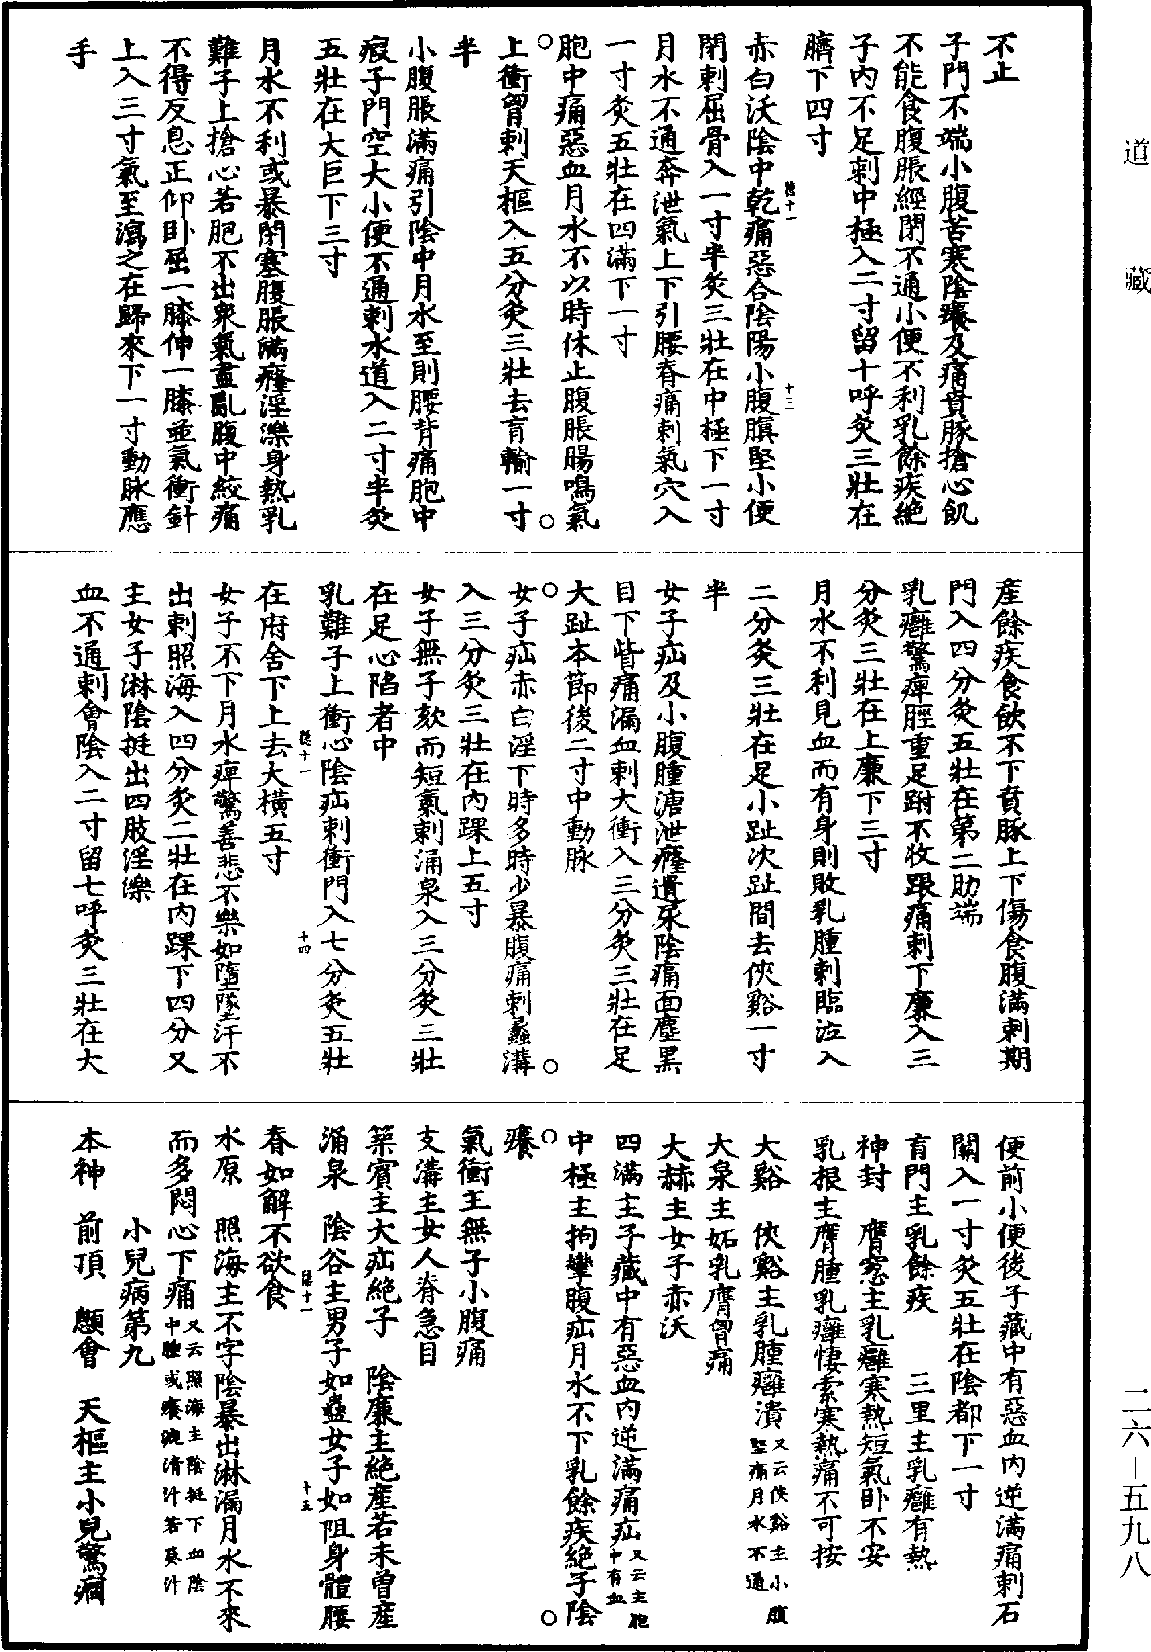 不止
子門不端小腹苦寒陰癢及痛賁豚搶心飢
不能食腹脹經閉不通小便不利乳餘疾絕
子內不足刺中極入二寸留十呼灸三壯在
臍下四寸
赤白沃陰中乾痛惡合陰陽小腹䐜堅小便
閉刺屈骨入一寸半灸三壯在中極下一寸
月水不通奔泄氣上下引腰脊痛刺氣穴入
一寸灸五壯在四滿下一寸
胞中痛惡血月水不以時休止腹脹腸鳴氣
上衝胷刺天樞入五分灸三壯去肓輸一寸
半
小腹脹滿痛引陰中月水至則腰背痛胞中
瘕子門空大小便不通刺水道入二寸半灸
五壯在大巨下三寸
月水不利或暴閉塞腹脹滿癃淫濼身熱乳
難子上搶心若胞不出衆氣盡亂腹中絞痛
不得反息正仰卧屈一膝伸一膝並氣衝針
上入三寸氣至瀉之在歸來下一寸動脉應
手
產餘疾食飲不下賁豚上下傷食腹滿刺期
門入四分灸五壯在第二肋端
乳癰驚痺脛重足跗不收跟痛刺下廉入三
分灸三壯在上廉下三寸
月水不利見血而有身則敗乳腫刺臨泣入
二分灸三壯在足小趾次趾間去俠谿一寸
半
女子疝及小腹腫溏泄癃遺尿陰痛面塵黑
目下眥痛漏血刺大衝入三分灸三壯在足
大趾本節後二寸中動脉
女子疝赤白淫下時多時少暴腹痛刺蠡溝
入三分灸三壯在內踝上五寸
女子無子欬而短氣刺涌泉入三分灸三壯
在足心陷者中
乳難子上衝心陰疝刺衝門入七分灸五壯
在府舍下上去大橫五寸
女子不下月水痺驚善悲不樂如墮墜汗不
出刺照海入四分灸二壯在內踝下四分又
主女子淋陰挺出四肢淫濼
血不通刺會陰入二寸留七呼灸三壯在大
便前小便後子藏中有惡血內逆滿痛刺石
關入一寸灸五壯在陰都下一寸
肓門主乳餘疾 三里主乳癰有熱
神封 膺窓主乳癰寒熱短氣卧不安
乳根主膺腫乳癰悽索寒熱痛不可按
大谿 俠谿主乳腫癰潰又云俠谿主小腹堅痛月水不通
大泉主妬乳膺胷痛
大赫主女子赤沃
四滿主子藏中有惡血內逆滿痛疝又云主胞中有血
中極主拘攣腹疝月水不下乳餘疾絕子陰
癢
氣衝主無子小腹痛
支溝主女人脊急目
築賓主大疝絕子 陰廉主絕產若未曾產
涌泉 陰谷主男子如蠱女子如阻身體腰
脊如解不欲食
水原 照海主不字陰暴出淋漏月水不來
而多悶心下痛又云照海主陰挺下血陰中腫或癢漉清汁若葵汁
小兒病第九
本神 前頂 顖會 天樞主小兒驚癇
道藏
二六—五九八